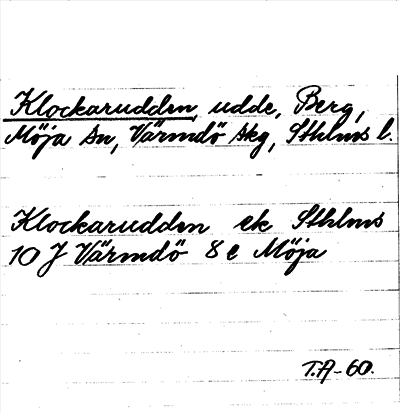 Klockarudden, udde, Berg,
Möja sn, Värmdö skg, Sthlms l.
Klockarudden ek Sthlms
10 J Värmdö 8 e Möja
T.A-60.